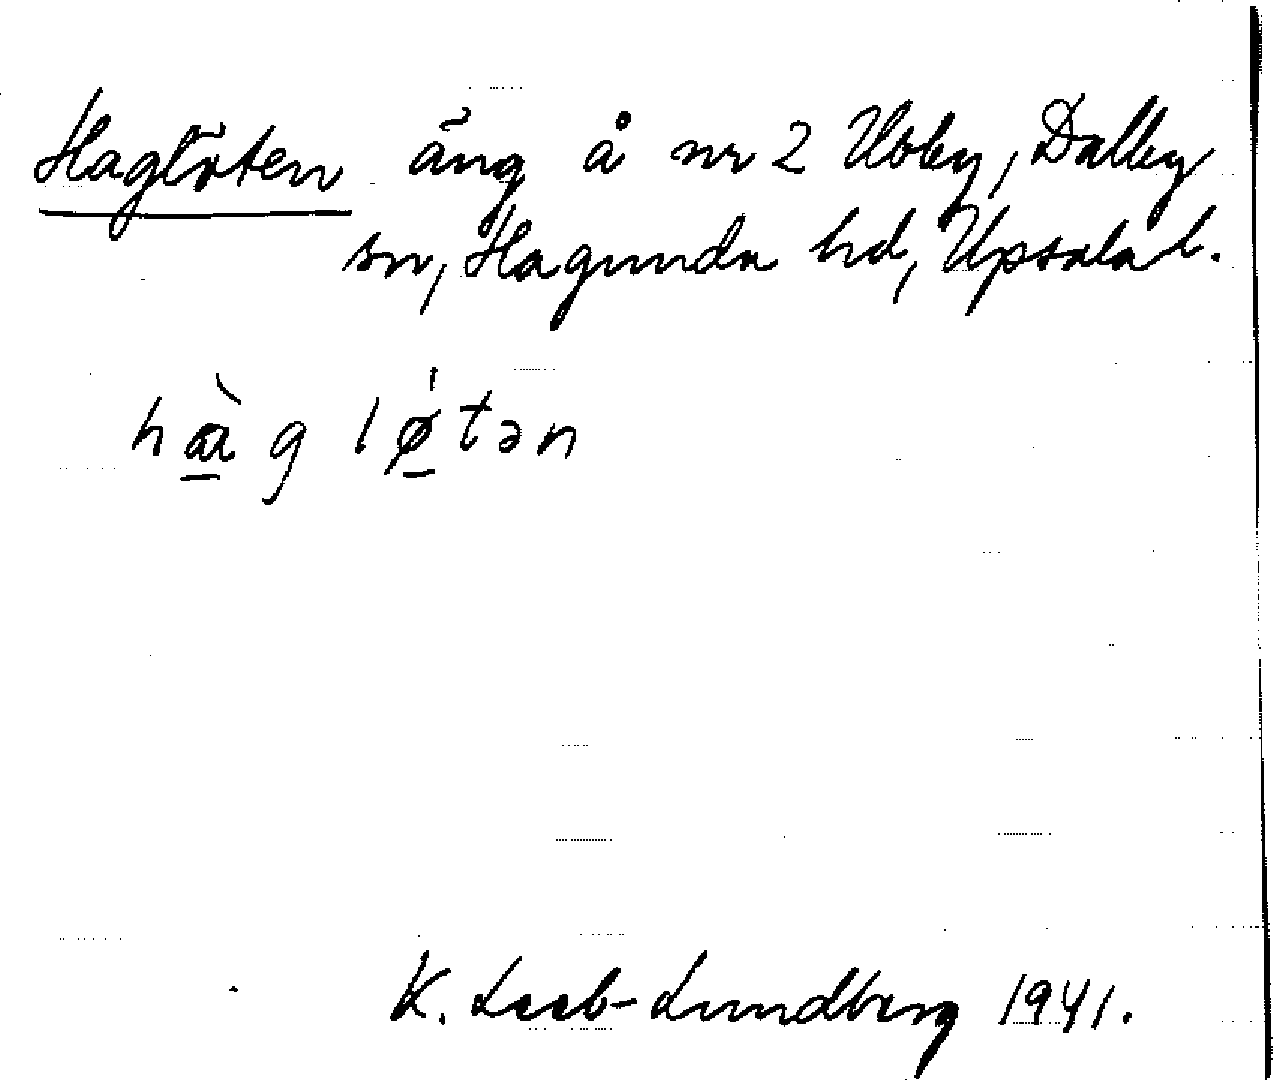 Haglöten äng å nr 2 Ubby, Dalby
sn, Hagunda hd, Upsala l.
hà̱g lǿ̱tən
K. Leeb-Lundberg 1941.